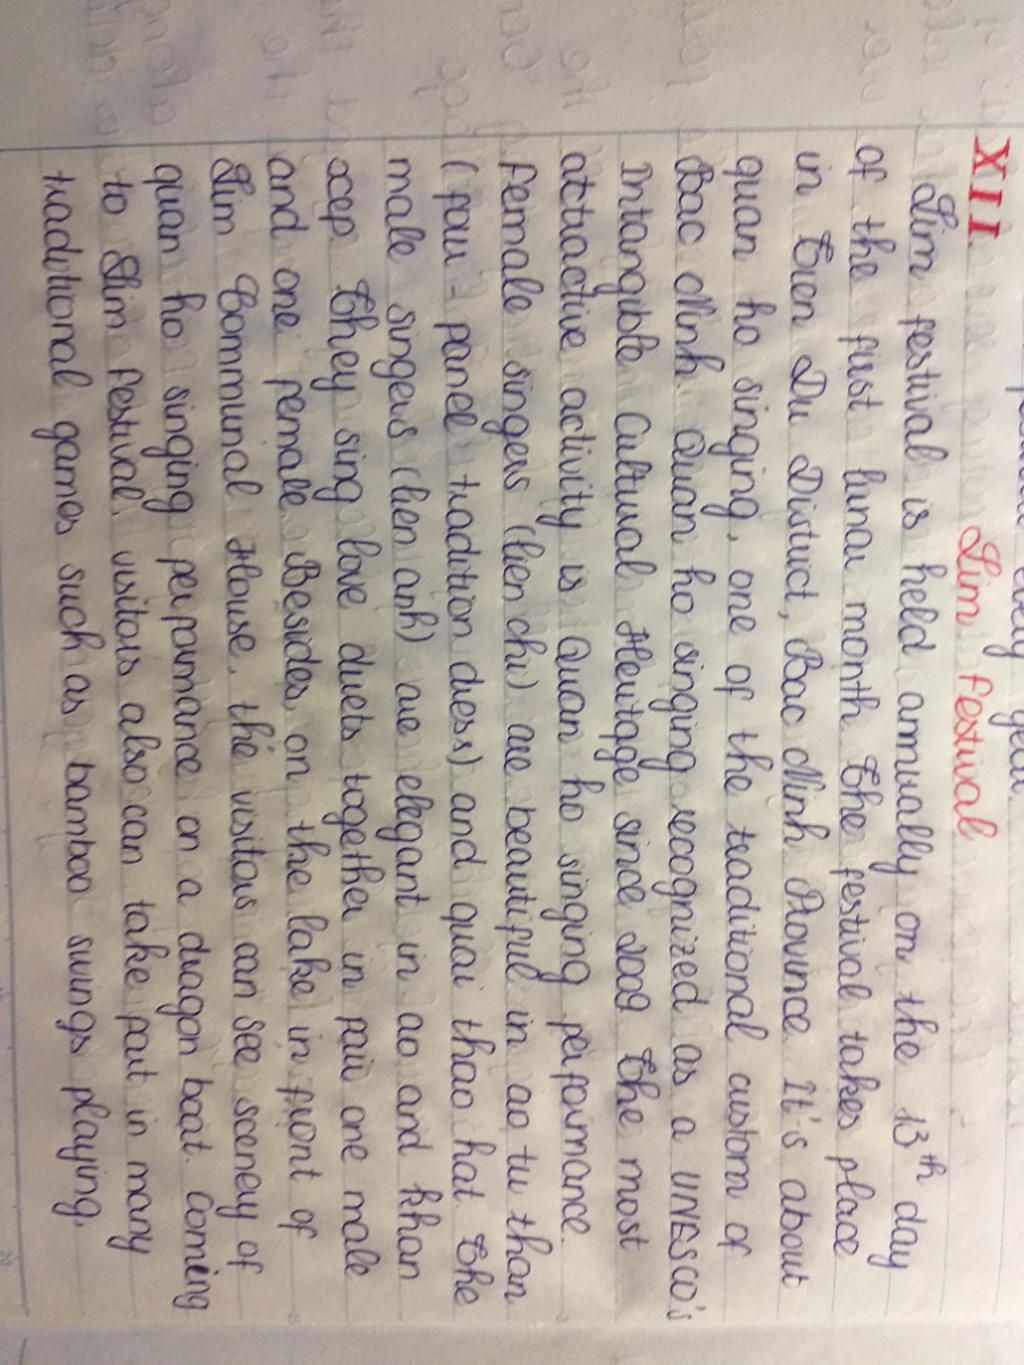 every year.
XII.
Lim festival
Lim festival is held annually on the 13th day
of the first lunar month. The festival takes place
in Tien Du District, Bac Ninh Province. It's about
quan ho singing, one of the traditional custom of
Bac Ninh. Quan ho singing recognized as a UNESCO's
Intangible Cultural Heritage since 2009. The most
attractive activity is Quan ho singing performance.
Female singers (lien chi) are beautiful in ao tu than
(four-panel tradition dress) and quai thao hat. The
male singers (lien anh) are elegant in ao and khan
xep. They sing love duets together in pair one male
and one female. Besides, on the lake in front of
Lim Communal House, the visitors can see sceney of
quan ho singing performance on a dragon boat. Coming
to Lim festival, visitors also can take part in many
traditional games such as bamboo swings playing,